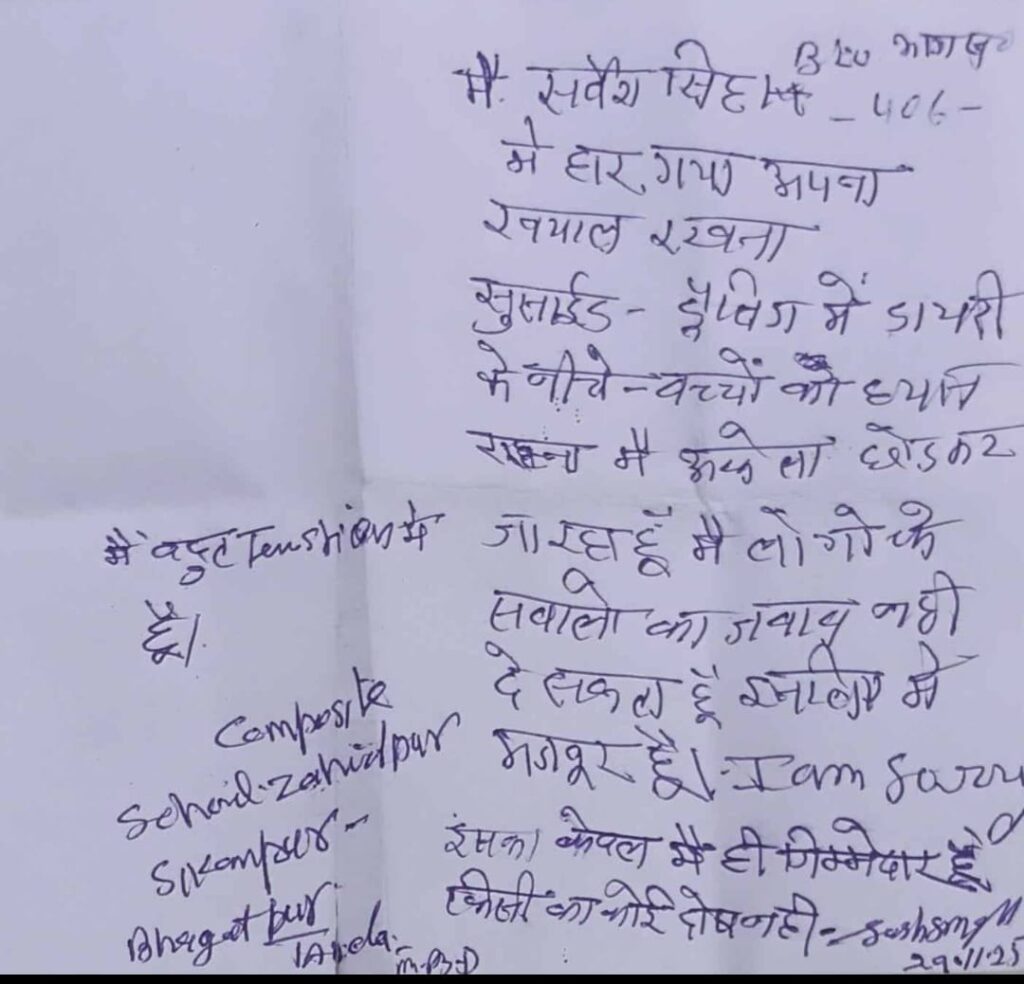 BLO भागपुर
मै. सर्वेश सिंह
- 406 -
मे हार गया अपना
ख्याल रखना
सुसाईड - ड्रेसिग में डायरी
के नीचे - बच्चों को ध्यान
रखना मै अकेला छोडकर
जा रहा हूँ मै लोगो के
सवालो का जवाब नही
दे सकता हूँ इसलिए मे
मजबूर हूँ। - I am Sorry
इसका केवल मै ही जिम्मेदार हूँ
किसी का कोई दोष नही -
29.11.25
मै बहुत Tenshion मे
हूँ।
Composite
School Zahidpur
Sikampur -
Bhagatpur
Tanda
M.B.D